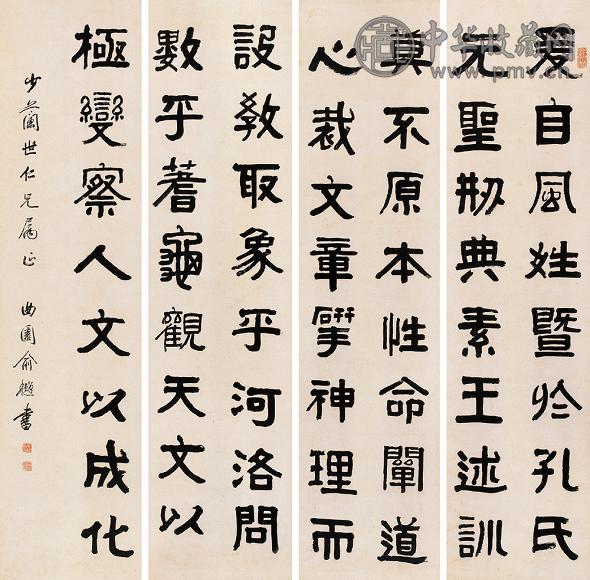 爰自風姓暨於孔氏
元聖刱典素王述訓
莫不原本性命闡道
心裁文章揅神理而
設教取象乎河洛問
數乎蓍龜觀天文以
極變察人文以成化
少蘭世仁兄屬正 曲園俞樾書
中华收藏网
www.pmv.cn